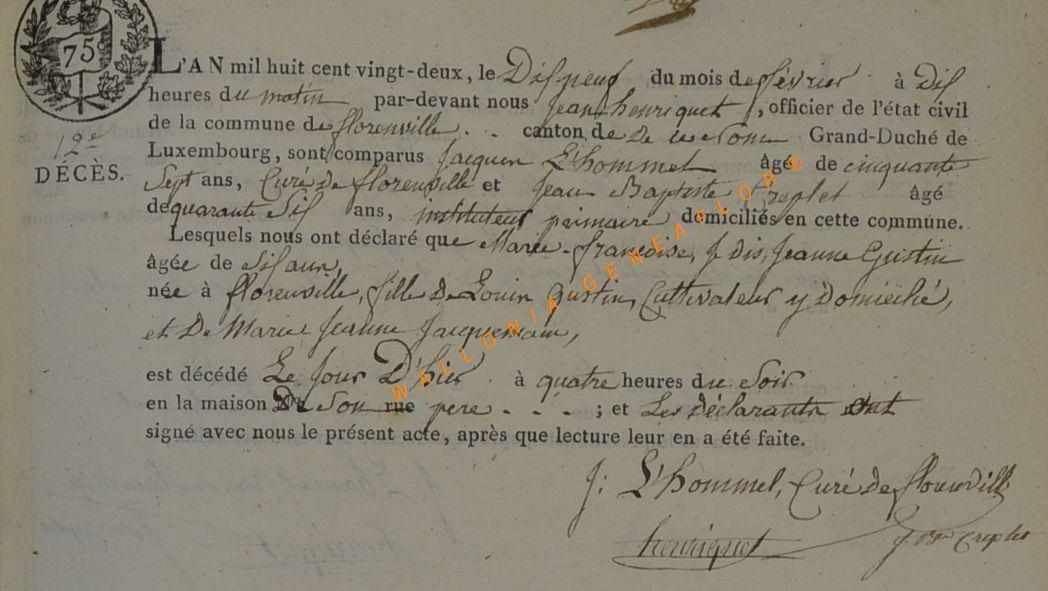 75
L'AN mil huit cent vingt-deux, le Dixneuf du mois de février à Dix
heures du matin par-devant nous Jean henriquet, officier de l'état civil
de la commune de florenville . . canton de Grand-Duché de
12e
DÉCÈS.
Luxembourg, sont comparus Jacques L'hommel âgé de cinquante
Sept ans, Curé de florenville et Jean Baptiste Creplet âgé
de quarante Six ans, instituteur primaire domiciliés en cette commune.
Lesquels nous ont déclaré que Marie françoise, J dis, Jeanne Gustin
âgée de Six ans,
née à florenville, fille de Louis gustin, Cultivateur y Domicilié,
et De Marie Jeanne Jacquemain,
est décédé Le Jour D'hier à quatre heures du Soir
en la maison De Son rue pere . . . ; et Les déclarants ont
signé avec nous le présent acte, après que lecture leur en a été faite.
J: L'hommel, Curé de florenville
henriquet J. Bte Creplet
WALLONIA GENEAFLOR©